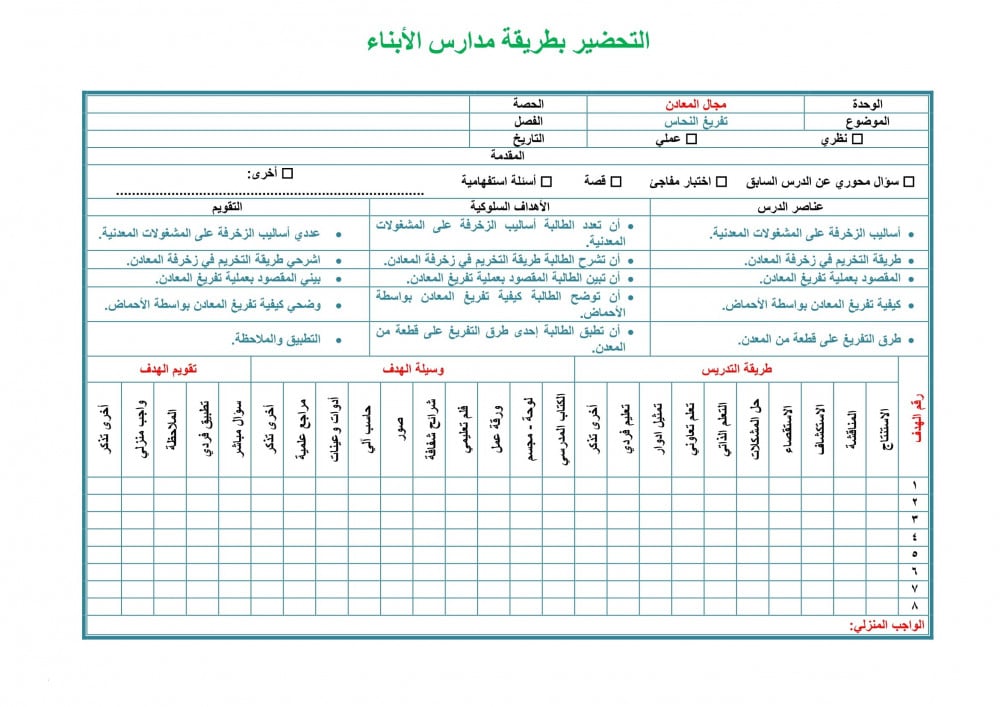 التحضير بطريقة مدارس الأبناء
الوحدة مجال المعادن الحصة
الموضوع تفريغ النحاس الفصل
نظري عملي التاريخ
المقدمة
سؤال محوري عن الدرس السابق اختبار مفاجئ قصة أسئلة استفهامية أخرى: ................................................................
عناصر الدرس الأهداف السلوكية التقويم
• أساليب الزخرفة على المشغولات المعدنية. • أن تعدد الطالبة أساليب الزخرفة على المشغولات
المعدنية. • عددي أساليب الزخرفة على المشغولات المعدنية.
• طريقة التخريم في زخرفة المعادن. • أن تشرح الطالبة طريقة التخريم في زخرفة المعادن. • اشرحي طريقة التخريم في زخرفة المعادن.
• المقصود بعملية تفريغ المعادن. • أن تبين الطالبة المقصود بعملية تفريغ المعادن. • بيني المقصود بعملية تفريغ المعادن.
• كيفية تفريغ المعادن بواسطة الأحماض. • أن توضح الطالبة كيفية تفريغ المعادن بواسطة
الأحماض. • وضحي كيفية تفريغ المعادن بواسطة الأحماض.
• طرق التفريغ على قطعة من المعدن. • أن تطبق الطالبة إحدى طرق التفريغ على قطعة من
المعدن. • التطبيق والملاحظة.
رقم الهدف طريقة التدريس وسيلة الهدف تقويم الهدف
الاستنتاج
المناقشة
الاستكشاف
الاستقصاء
حل المشكلات
التعلم الذاتي
تعلم تعاوني
تمثيل ادوار
تعليم فردي
أخرى تذكر
الكتاب المدرسي
لوحة - مجسم
ورقة عمل
فلم تعليمي
شرائح شفافة
صور
حاسب آلي
أدوات وعينات
مراجع علمية
أخرى تذكر
سؤال مباشر
تطبيق فردي
الملاحظة
واجب منزلي
أخرى تذكر
١
٢
٣
٤
٥
٦
٧
٨
الواجب المنزلي: